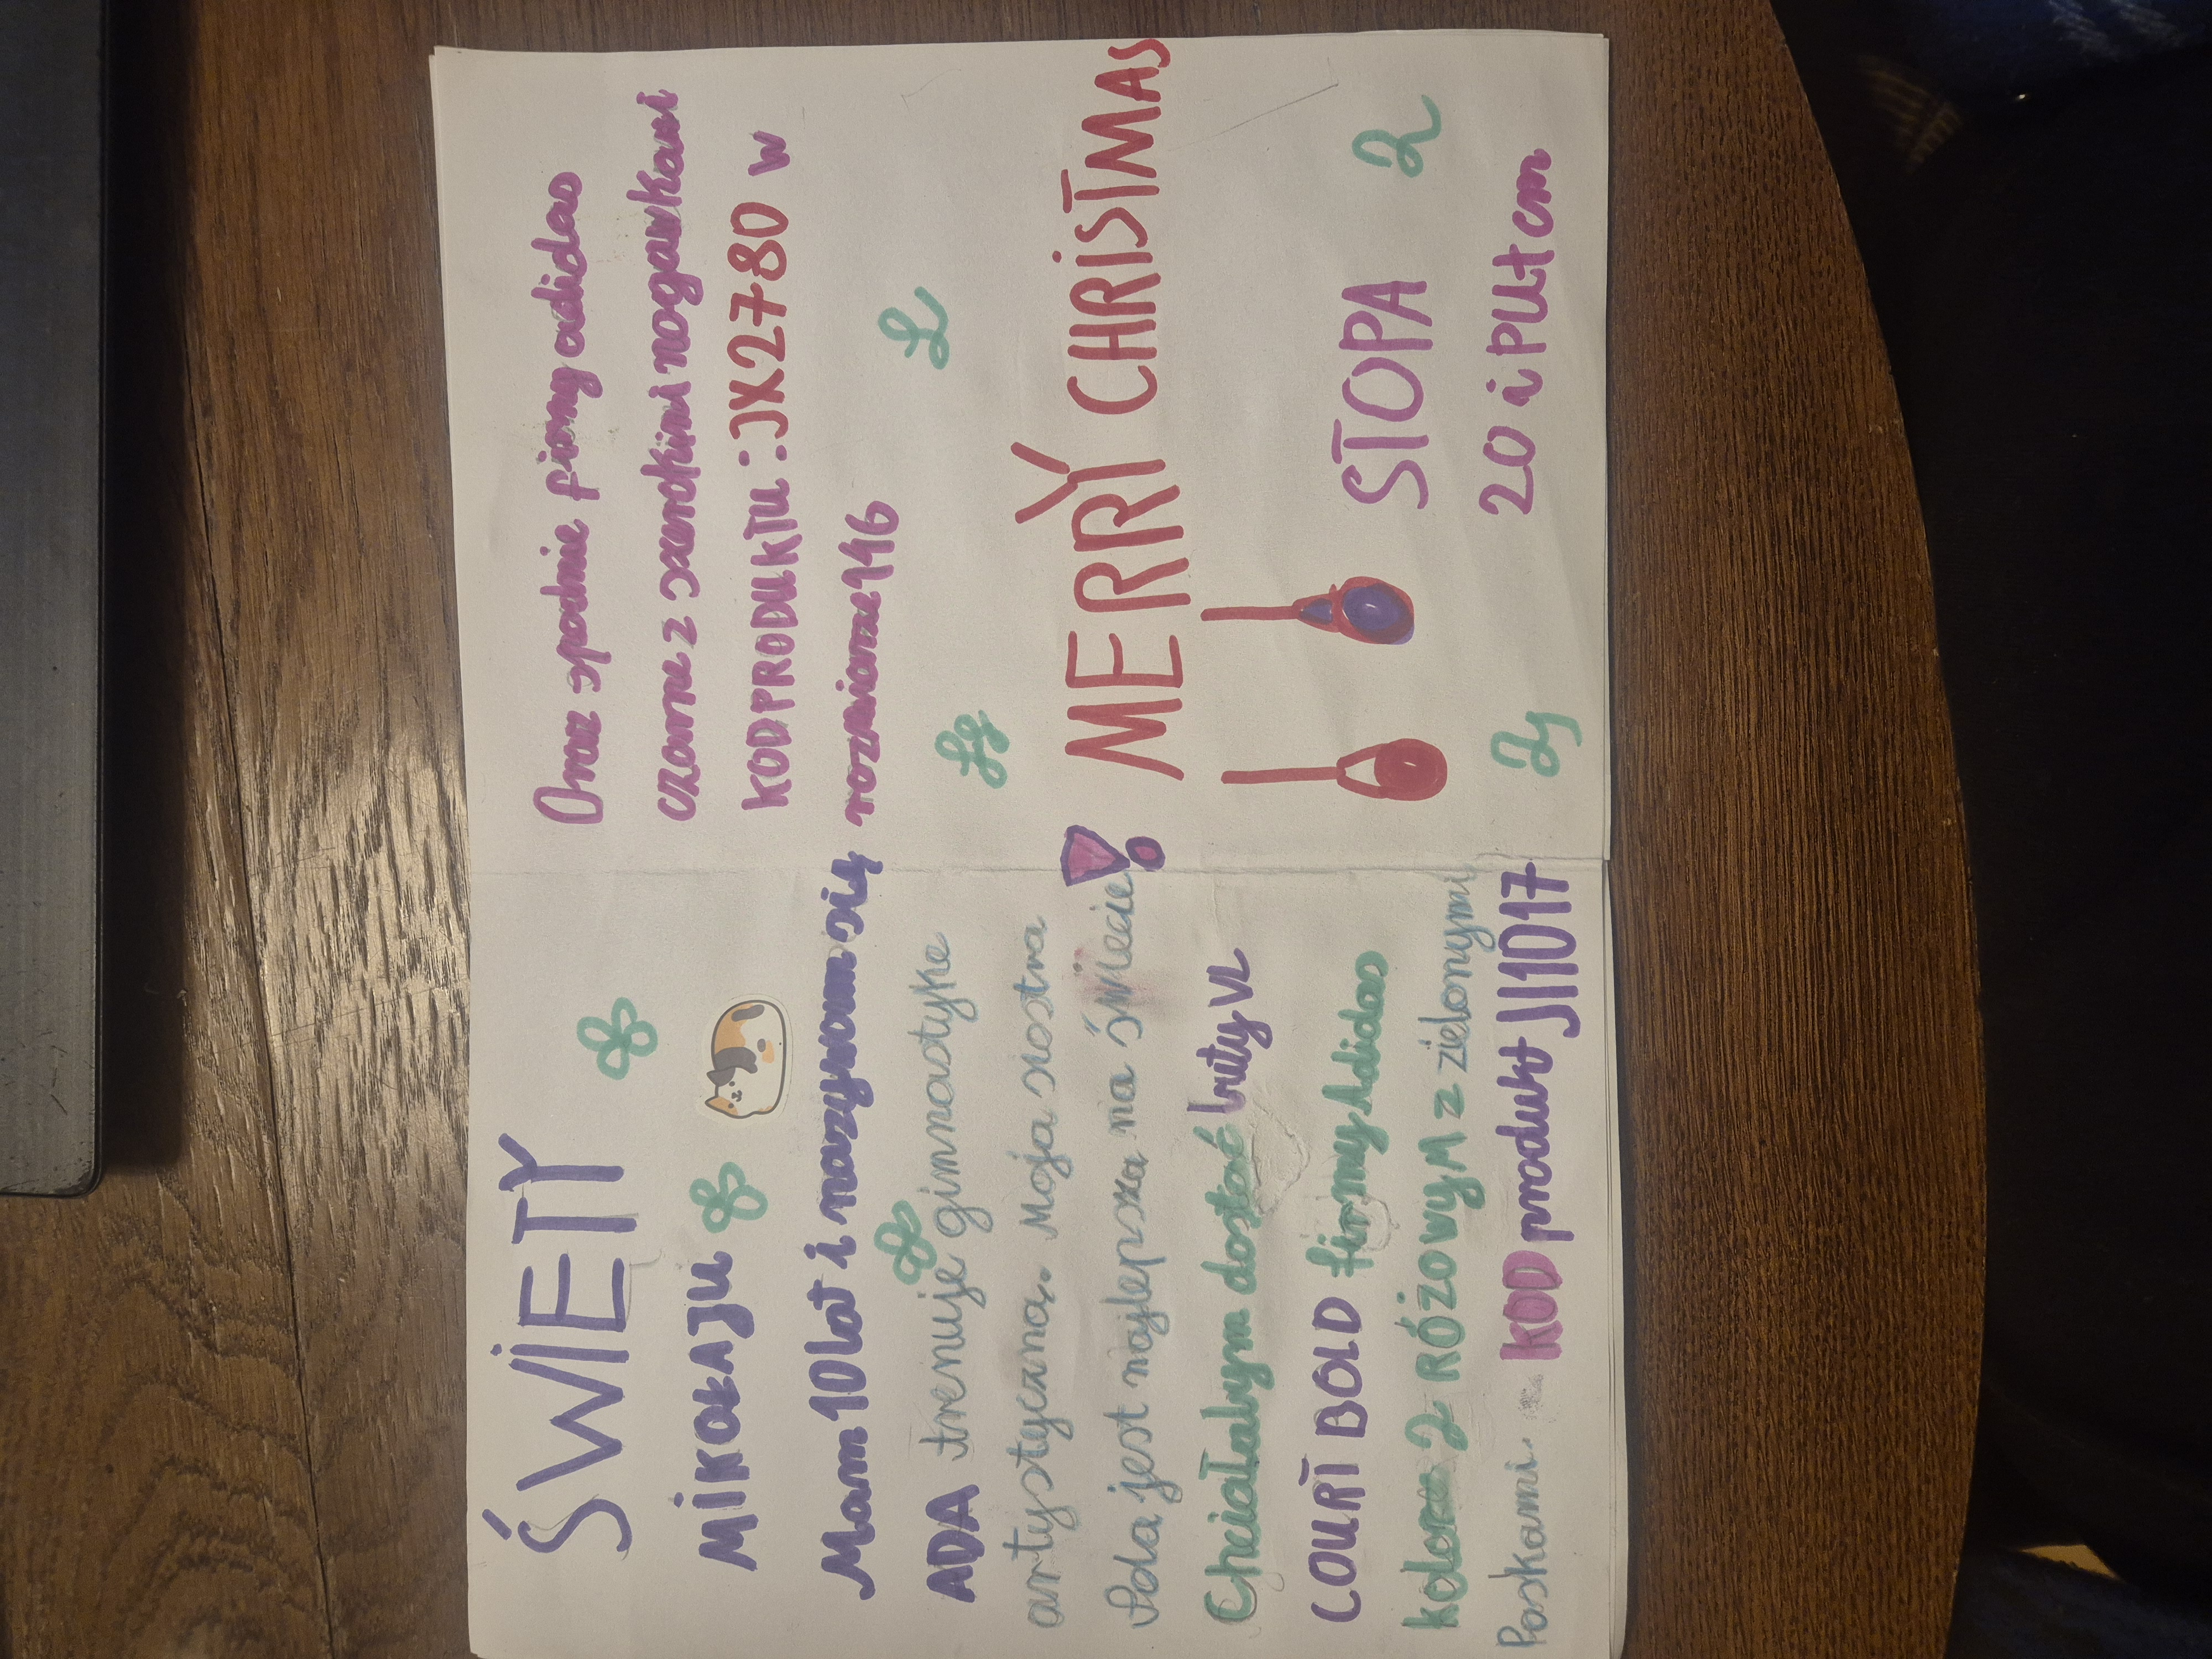 ŚWIETY
MIKOŁAJU
Mam 10 lat i nazywam się
ADA trenuje gimnastyke
artystyczną. Moja siostra
Pola jest najlepsza na świecie!
Chciałabym dostać buty VL
COURT BOLD firmy Adidas
kolorze RÓŻOWYM z zielonymi
Paskami. KOD produkt JI1017
Oraz spodnie firmy adidas
czarne z szerokimi nogawkami
KOD PRODUKTU: JX2780 w
rozmiarze 146
MERRY CHRISTMAS
STOPA
20 i PUŁ cm